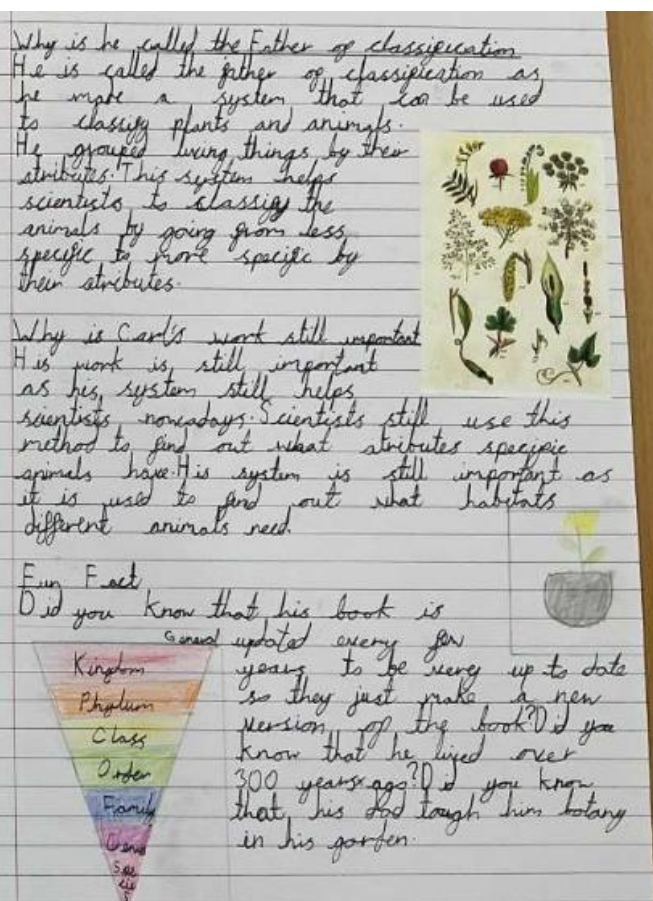 Why is he called the Father of classification
He is called the father of classification as
he made a system that can be used
to classify plants and animals.
He grouped living things by their
atributes. This system helps
scientists to classify the
animals by going from less
specific to more specific by
their atributes.
Why is Carl's work still important
His work is still important
as his system still helps
scientists nowadays. Scientists still use this
method to find out what atributes specific
animals have. His system is still important as
it is used to find out what habitats
different animals need.
Fun Fact
Did you know that his book is
updated every few
years to be very up to date
so they just make a new
version of the book? Did you
know that he lived over
300 years ago? Did you know
that his dad tough him botany
in his garden.
General
Kingdom
Phylum
Class
Order
Family
Genus
Spe
cie
s